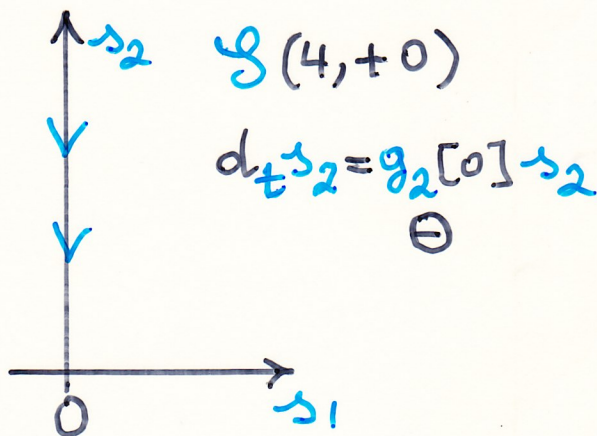 s₂ S(4,+0)
dₜs₂=g₂[0]s₂
⊖
0
s₁